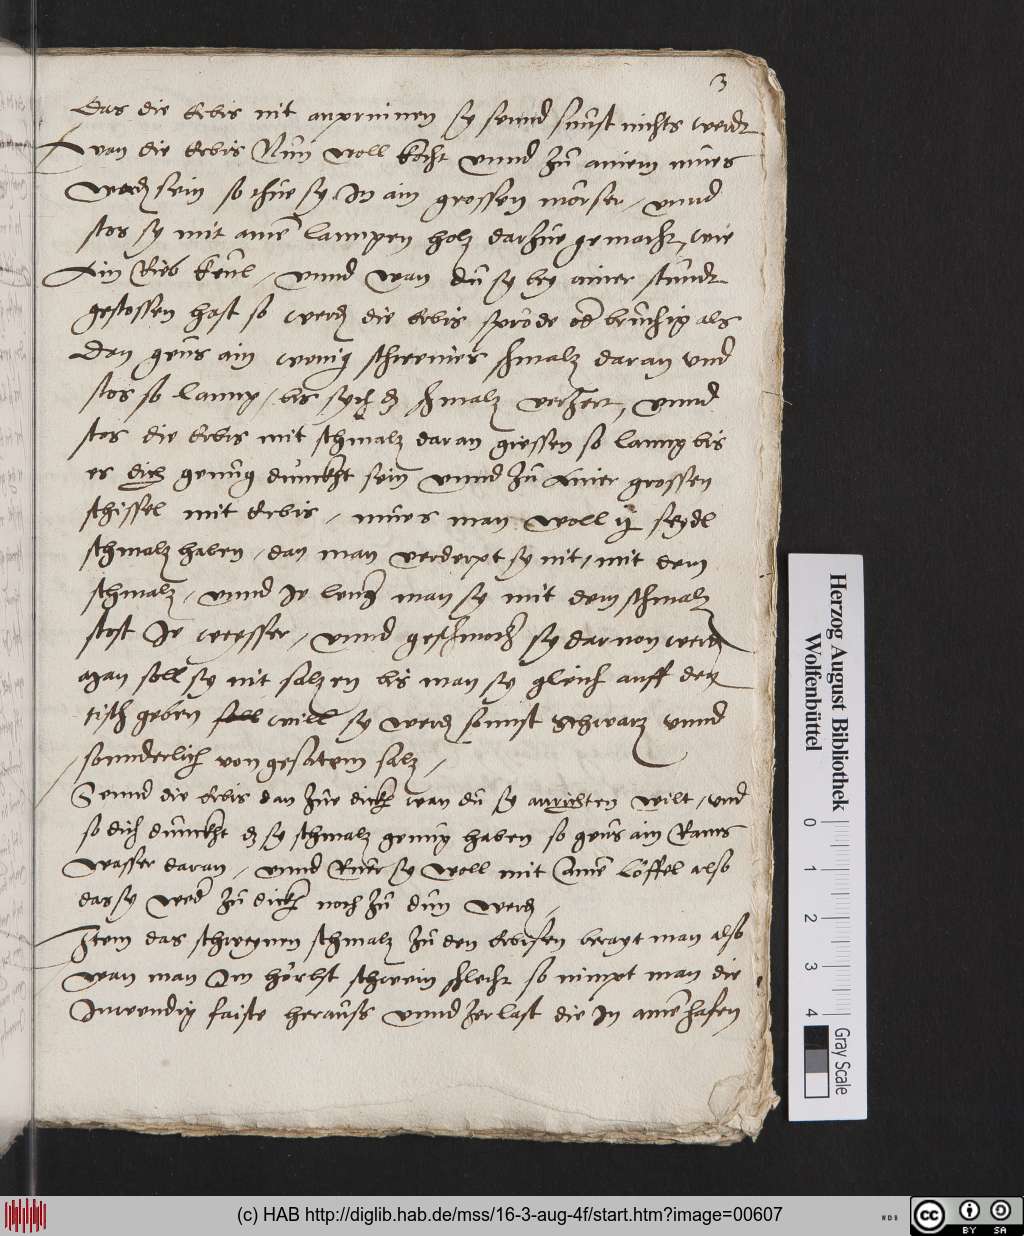 3
Das die Erbis nit anprinnen sy seinnd sunst nichts werdt
Wan die Erbis Nun woll kocht vnnd zu ainem mues
werdn sein so thue sy In ain grossen morser, vnnd
stos sy mit aine lanngen holz darzue gemacht, wie
Ain Rieb keul, vnnd wan du sy bey ainer stundt
gestossen hast so werdn die Erbis sprode od bruchig als
dan geus ain wenig schweines schmalz daran vnd
stos so lanng, bis sych dz schmalz verzert, vnnd
stos die Erbis mit schmalz daran giessen so lanng bis
es dich genug dunckht sein vnnd zu Ainer grossen
schissel mit Erbis, mues man woll ij seydl
schmalz haben, dan man verderpt sy nit, mit dem
schmalz, vnnd Ie lenger man sy mit dem schmalz
stost Ie weysser, vnnd geschmacher sy daruon werdn
man soll sy nit salzen bis man sy gleich auff den
tisch geben soll will sy werdn sonnst schwarz vnnd
sonnderlich von gesotem salz,
Seinnd die Erbis dan zue dickh wan du sy anrichten wilt, vnd
so dich dunckht dz sy schmalz genug haben so geus ain Raines
wasser daran, vnnd Ruer sy woll mit aine Löffel also
das sy wed zu dickh noch zu dun werdn,
Item das schweynen schmalz zu den Erbisen berayt man also
wan man Im herbst schwein schlecht so nimpt man die
Inwendig faiste herauss vnnd zerlast die In aine hafen
Herzog August Bibliothek
Wolfenbüttel
0 1 2 3 4
Gray Scale
(c) HAB http://diglib.hab.de/mss/16-3-aug-4f/start.htm?image=00607
WDB
cc
BY SA